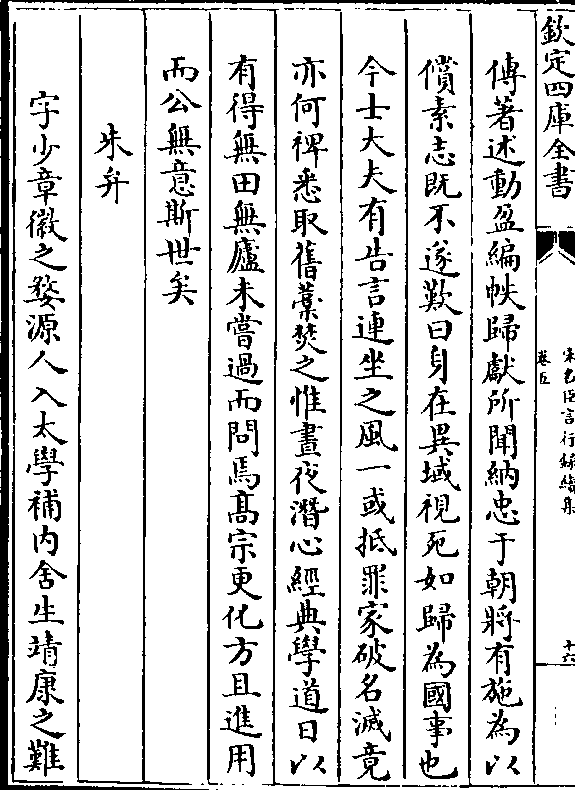 欽定四庫全書
宋名臣言行録續集
卷五
十六
傳著述動盈編帙歸獻所聞納忠于朝將有施為以
償素志既不遂歎曰身在異域視死如歸為國事也
今士大夫有告言連坐之風一或抵罪家破名滅竟
亦何裨悉取舊藁焚之惟晝夜潛心經典學道日以
有得無田無廬未嘗過而問焉高宗更化方且進用
而公無意斯世矣
朱弁
字少章徽之婺源人入太學補内舍生靖康之難